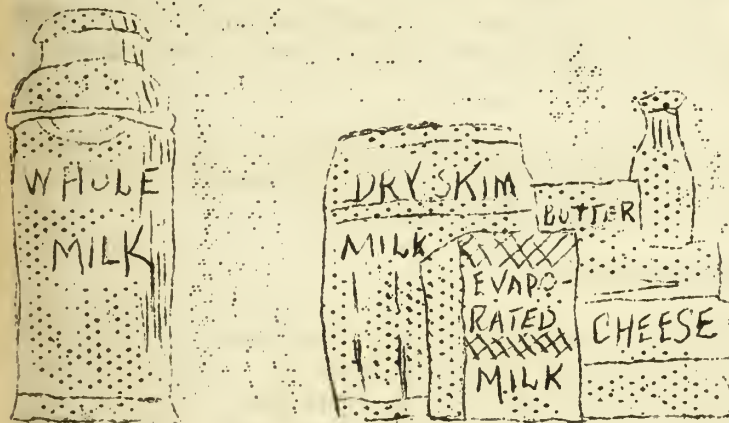 WHOLE
MILK
DRY SKIM
MILK
BUTTER
EVAPO-
RATED
MILK
CHEESE